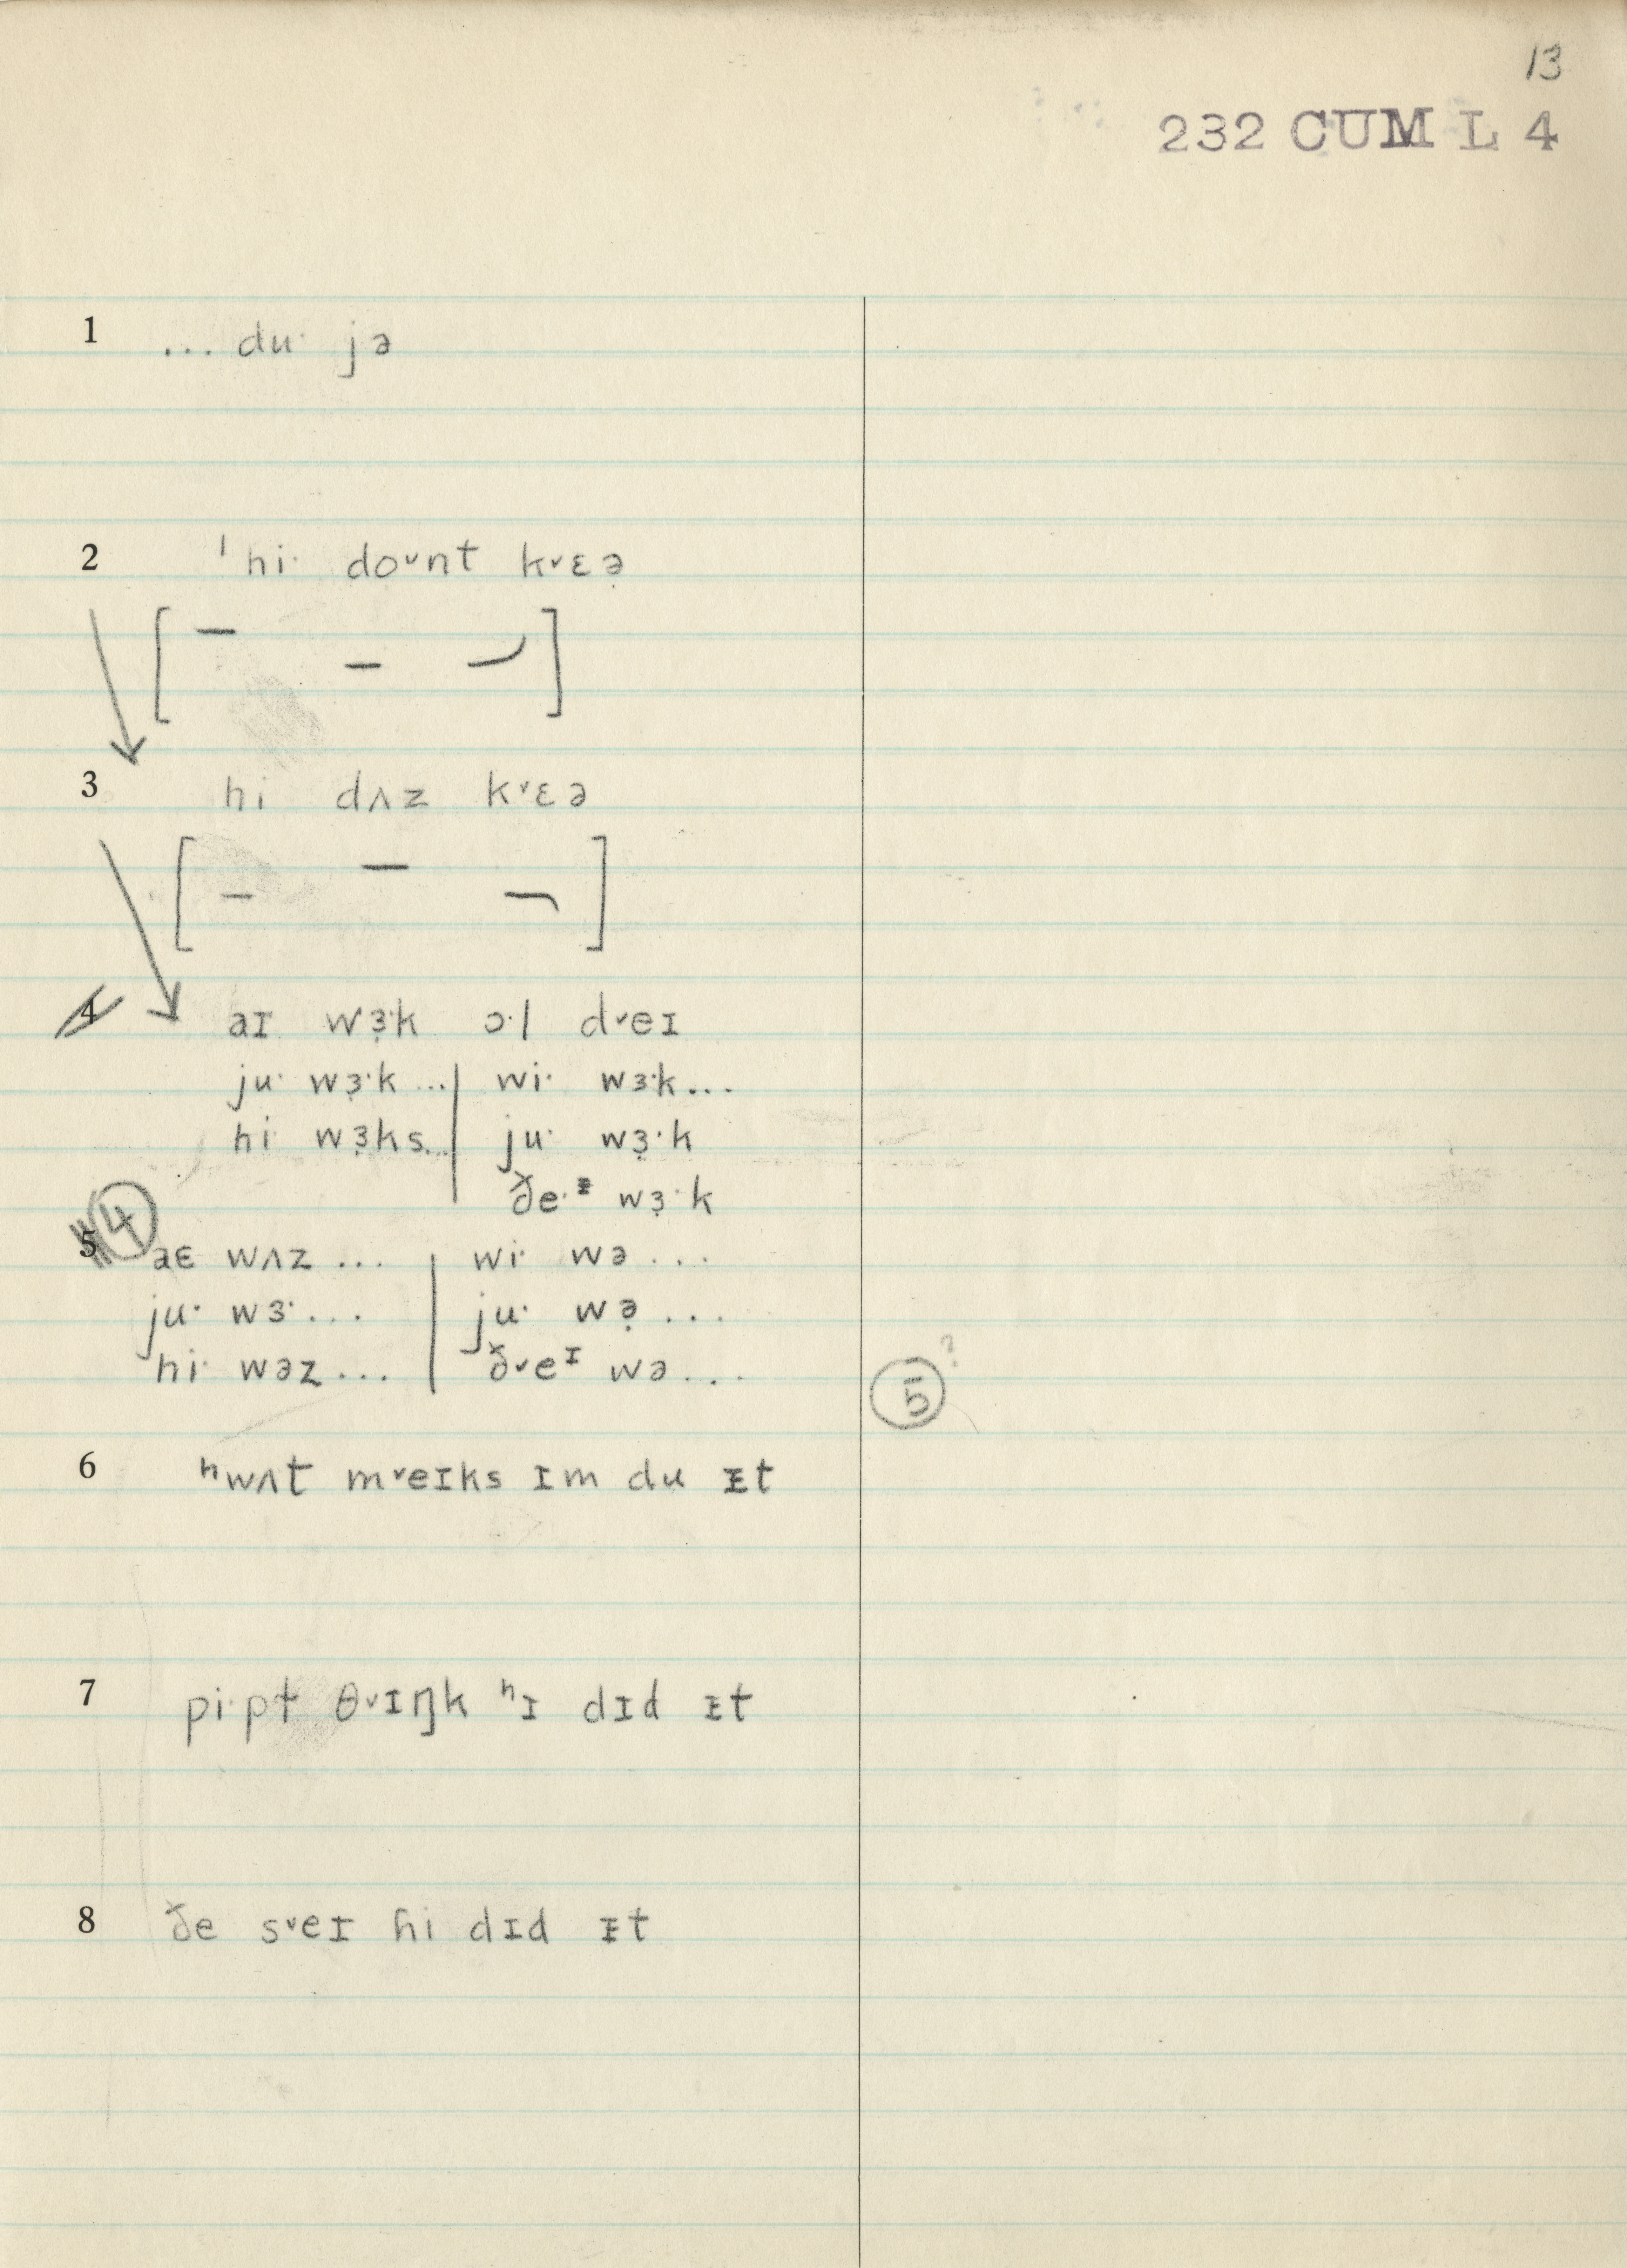 13
232 CUM L 4
1 ... du· jə
2 ˈhi· doᵛnt kᵛɛə̣
3 hi dʌz kᵛɛə
4 aɪ wɜ̣·k ɔ·l dᵛeɪ
ju· wɜ̣·k ... | wi· wɜ·k...
hi· wɜ̣ks... | ju· wɜ̣·k
ðe·ᵻ wɜ̣·k
5 4 aɛ wʌz ... | wi· wə ...
ju· wɜ· ... | ju· wə̣ ...
hi· wəz ... | ðᵛeᶦ wə ...
5 ?
6 ʰwʌt mᵛeɪks ɪm du ᵻt
7 pi·pɫ θᵛɪŋk ʰɪ dɪd ᵻt
8 ðe sᵛeɪ ɦi dɪd ᵻt